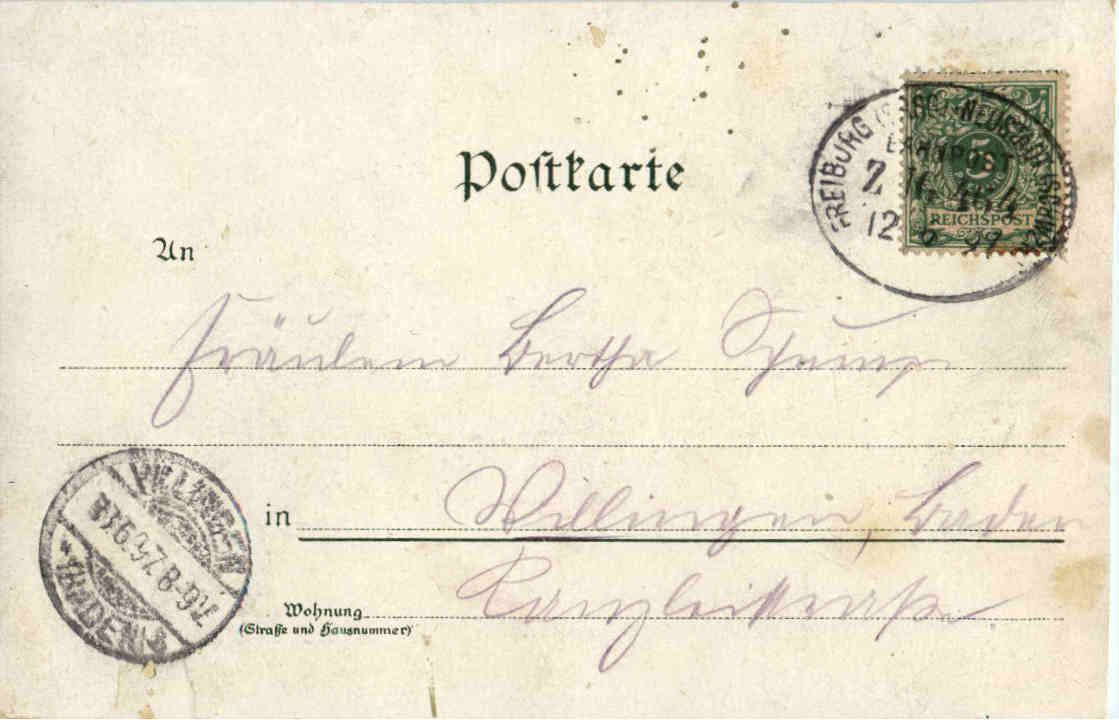 Postkarte
FREIBURG (BADEN)-NEUSTADT (SCHWARZW
BAHNPOST
Z. 184
12 6 97
5
REICHSPOST
An
Fräulein Bertha
Villingen, Baden
in
Kanzleistraße
Wohnung
(Straße und Hausnummer)
VILLINGEN
13.6.97.8-9V.
*(BADEN)*